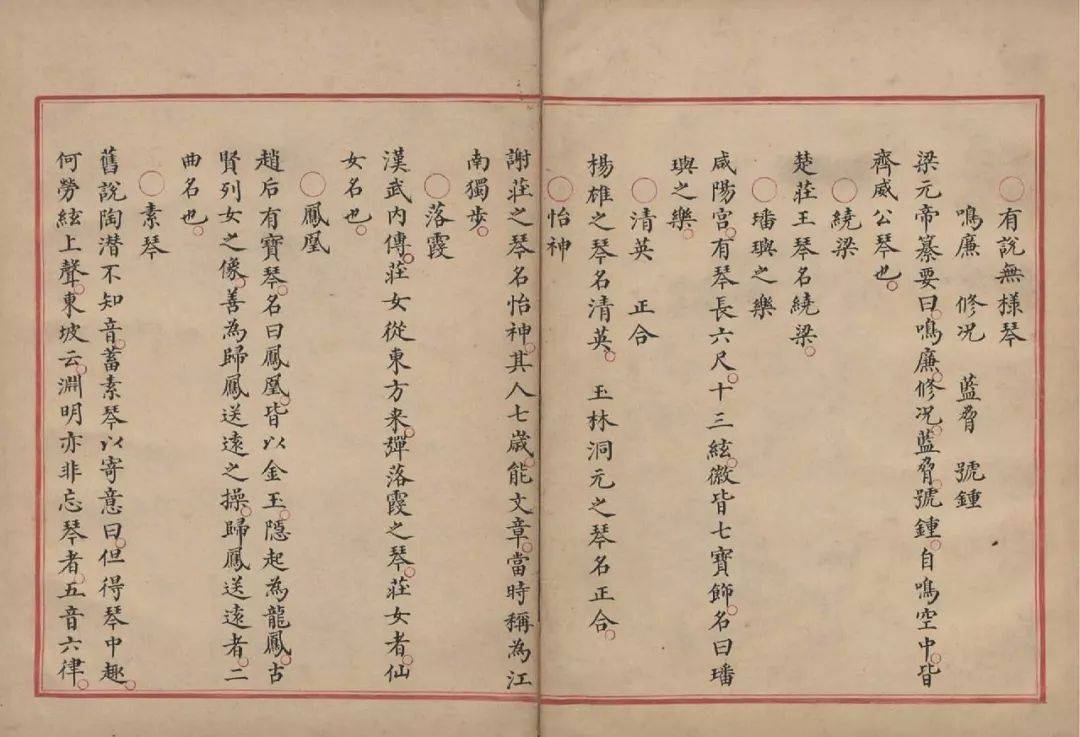 ○有說無樣琴
鳴廉 修况 藍脅 號鍾
梁元帝纂要曰。鳴廉。修况。藍脅。號鍾。自鳴空中。皆
齊威公琴也。
○繞梁
楚莊王琴名繞梁。
○璠璵之樂
咸陽宫。有琴長六尺。十三絃。徽皆七寶飾。名曰璠
璵之樂。
○清英 正合
楊雄之琴名清英。 玉林洞元之琴名正合。
○怡神
謝莊之琴名怡神。其人七歲。能文章。當時稱為江
南獨步。
○落霞
漢武內傳。莊女從東方来。彈落霞之琴。莊女者。仙
女名也。
○鳳凰
趙后有寶琴。名曰鳳凰。皆以金玉。隱起為龍鳳。古
賢列女之像。善為歸鳳送遠之操。歸鳳送遠者。二
曲名也。
○素琴
舊說陶潜不知音。蓄素琴以寄意曰。但得琴中趣。
何勞絃上聲。東坡云。淵明亦非忘琴者。五音六律。